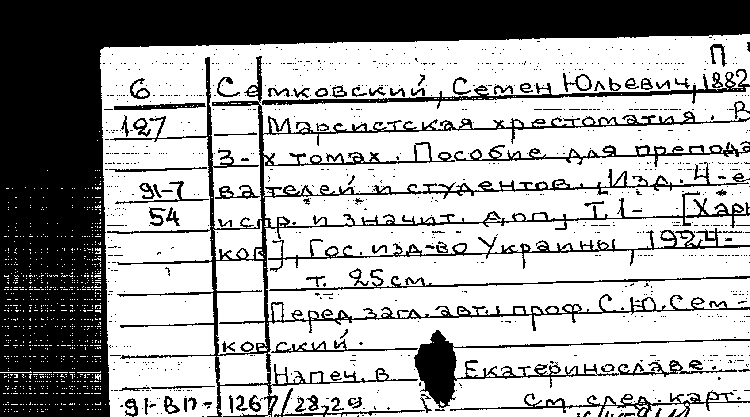 П
6 Семковский, Семен Юльевич, 1882
127 Марсистская хрестоматия. В
3-х томах. Пособие для препода
91-7 вателей и студентов. [Изд. 4-е
54 испр. и значит. доп.] Т. 1- [Харь
ков], Гос. изд-во Украины, 1924-
т. 25 см.
Перед загл. авт.: проф. С.Ю. Сем-
ковский.
Напеч. в Екатеринославе.
91-ВП- 1267/28,29 см. след. карт.